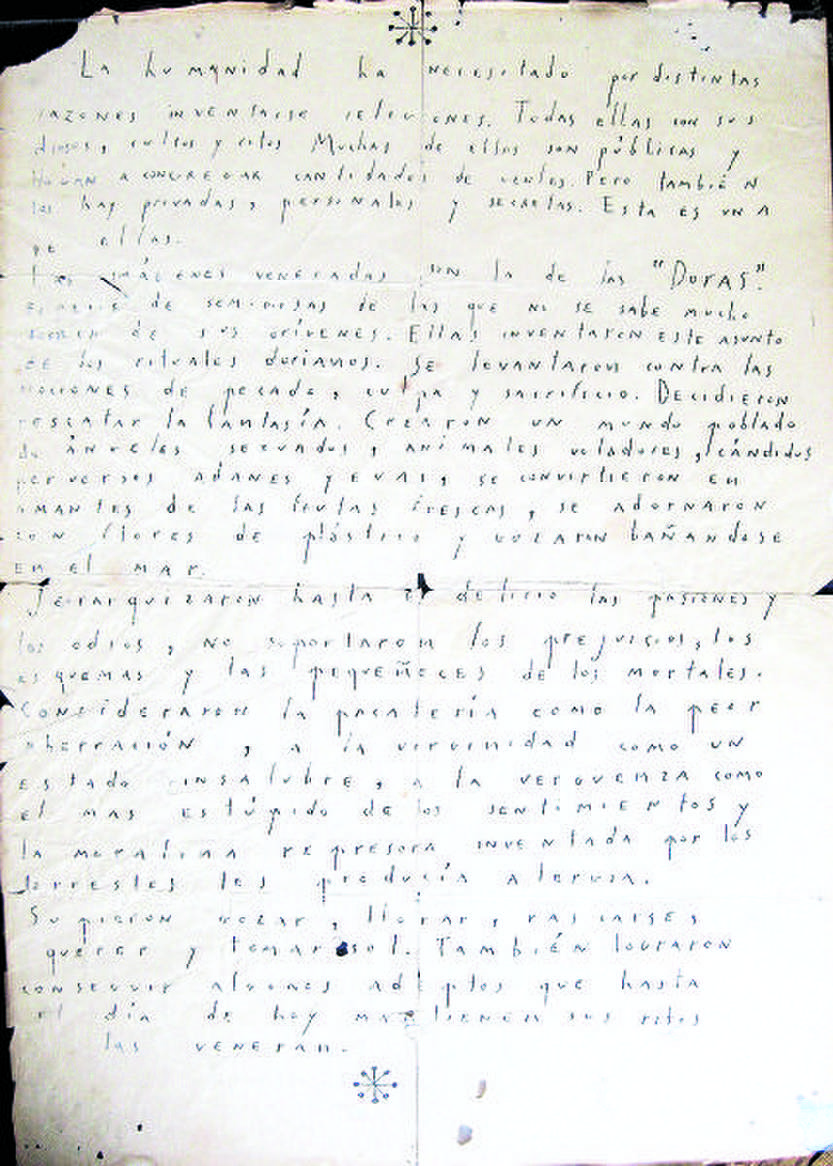 La humanidad ha necesitado por distintas
razones inventarse religiones. Todas ellas con sus
dioses, cultos y ritos Muchas de ellas son públicas y
llegan a congregar cantidades de gentes. Pero también
las hay privadas, personales y secretas. Esta es una
de ellas.
Las imágenes veneradas son la de las "Doras".
especie de semidiosas de las que no se sabe mucho
acerca de sus orígenes. Ellas inventaron este asunto
de los rituales dorianos. Se levantaron contra las
nociones de pecado, culpa y sacrificio. Decidieron
rescatar la fantasía. Crearon un mundo poblado
de ángeles sexuados, animales voladores, cándidos
perversos adanes y evas, se convirtieron en
amantes de las frutas frescas, se adornaron
con flores de plástico y gozaron bañandose
en el mar.
Jerarquizaron hasta el delirio las pasiones y
los odios, no soportaron los prejuicios, los
esquemas y las pequeñeces de los mortales.
Consideraron la pacatería como la peor
aberración, a la virginidad como un
estado insalubre, a la verguenza como
el mas estúpido de los sentimientos y
la moralina represora inventada por los
terrestres les producía alergia.
Supieron gozar, llorar, rascarse,
querer y tomar sol. También lograron
conseguir algunos adeptos que hasta
el día de hoy mantienen sus ritos
las veneran.